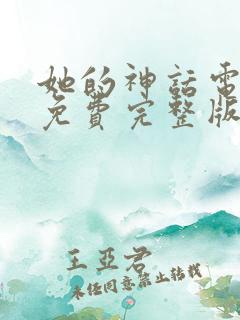 她的神話電
免費完整版
王亞君
未經同意禁止轉載